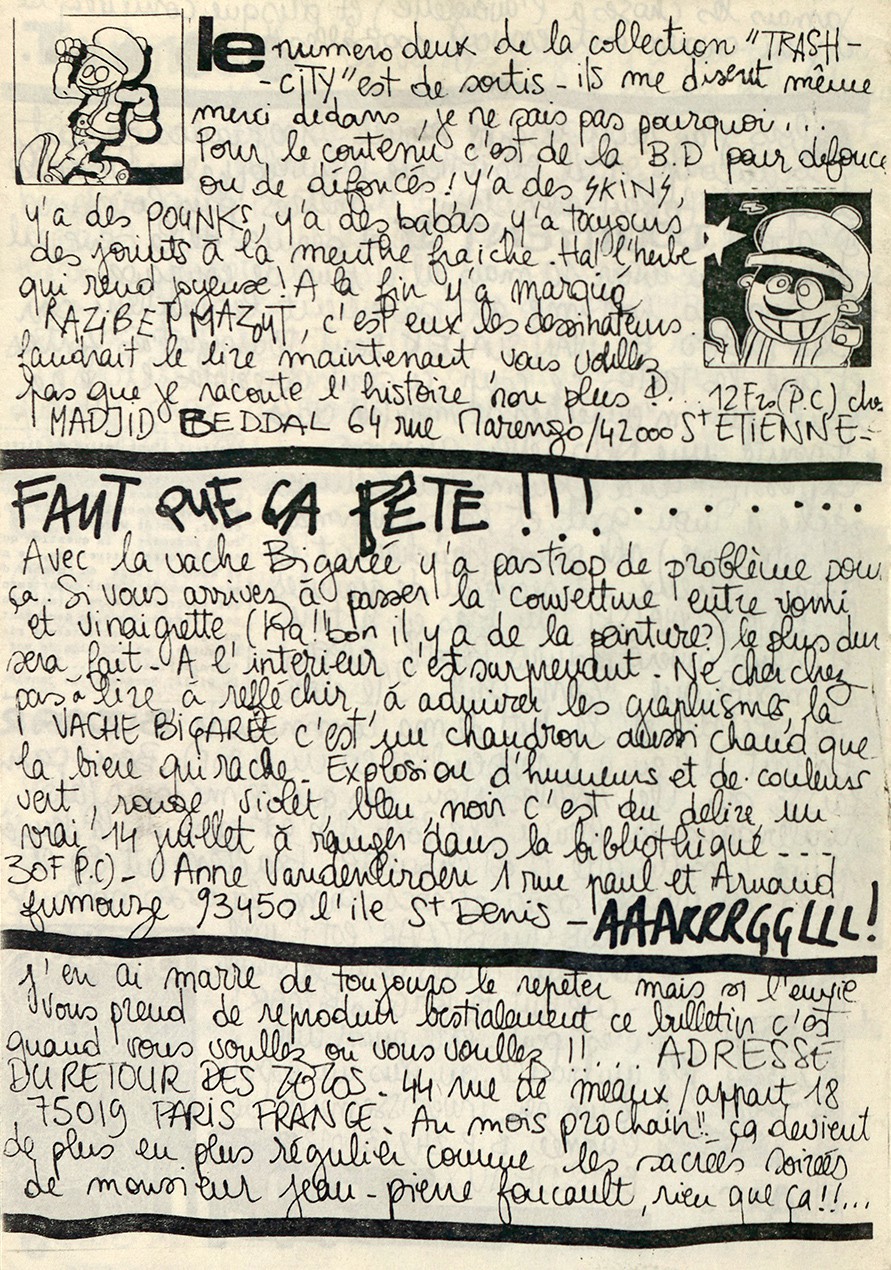 le numero deux de la collection "TRASH-
-CITY" est de sortis - ils me disent même
merci dedans, je ne sais pas pourquoi...
Pour le contenu c'est de la B.D pour defonce
ou de défoncés! Y'a des SKINS,
y'a des POUNKS, y'a des babas, y'a toujours
des joints à la menthe fraiche. Ha! l'herbe
qui rend joyeuse! A la fin y'a marqué
RAZIBET MAZOUT, c'est eux les dessinateurs.
faudrait le lire maintenant, vous voullez
pas que je raconte l'histoire non plus!)... 12Frs(P.C) chez
MADJID BEDDAL 64 rue Marengo/42000 St ETIENNE-
FAUT QUE ÇA PÊTE!!!.........
Avec la vache Bigarée y'a pas trop de problème pour
ça. Si vous arrivez à passer la couverture entre vomi
et vinaigrette (Ha!! bon il y a de la peinture?) le plus dur
sera fait - A l'interieur c'est surprenant. Ne cherchez
pas à lire, à refléchir, à admirer les graphismes, la
VACHE BIGAREE c'est un chaudron aussi chaud que
la biere qui rache. Explosion d'humeurs et de couleurs
vert, rouge, violet, bleu, noir c'est du delire un
vrai 14 juillet à ranger dans la bibliothèque ----
30F(P.C)- Anne Vandenlirden 1 rue paul et Arnaud
fumouze 93450 l'ile St Denis - AAARRRGGLLL!
j'en ai marre de toujours le repeter mais si l'envie
vous prend de reproduir bestialement ce bulletin c'est
quand vous voullez où vous voullez!!.... ADRESSE
DU RETOUR DES ZOZOS. 44 rue de meaux/appart 18
75019 PARIS FRANCE. Au mois prochain!! ça devient
de plus en plus régulier comme les sacrées soirées
de monsieur jean-pierre foucault, rien que ça!!...